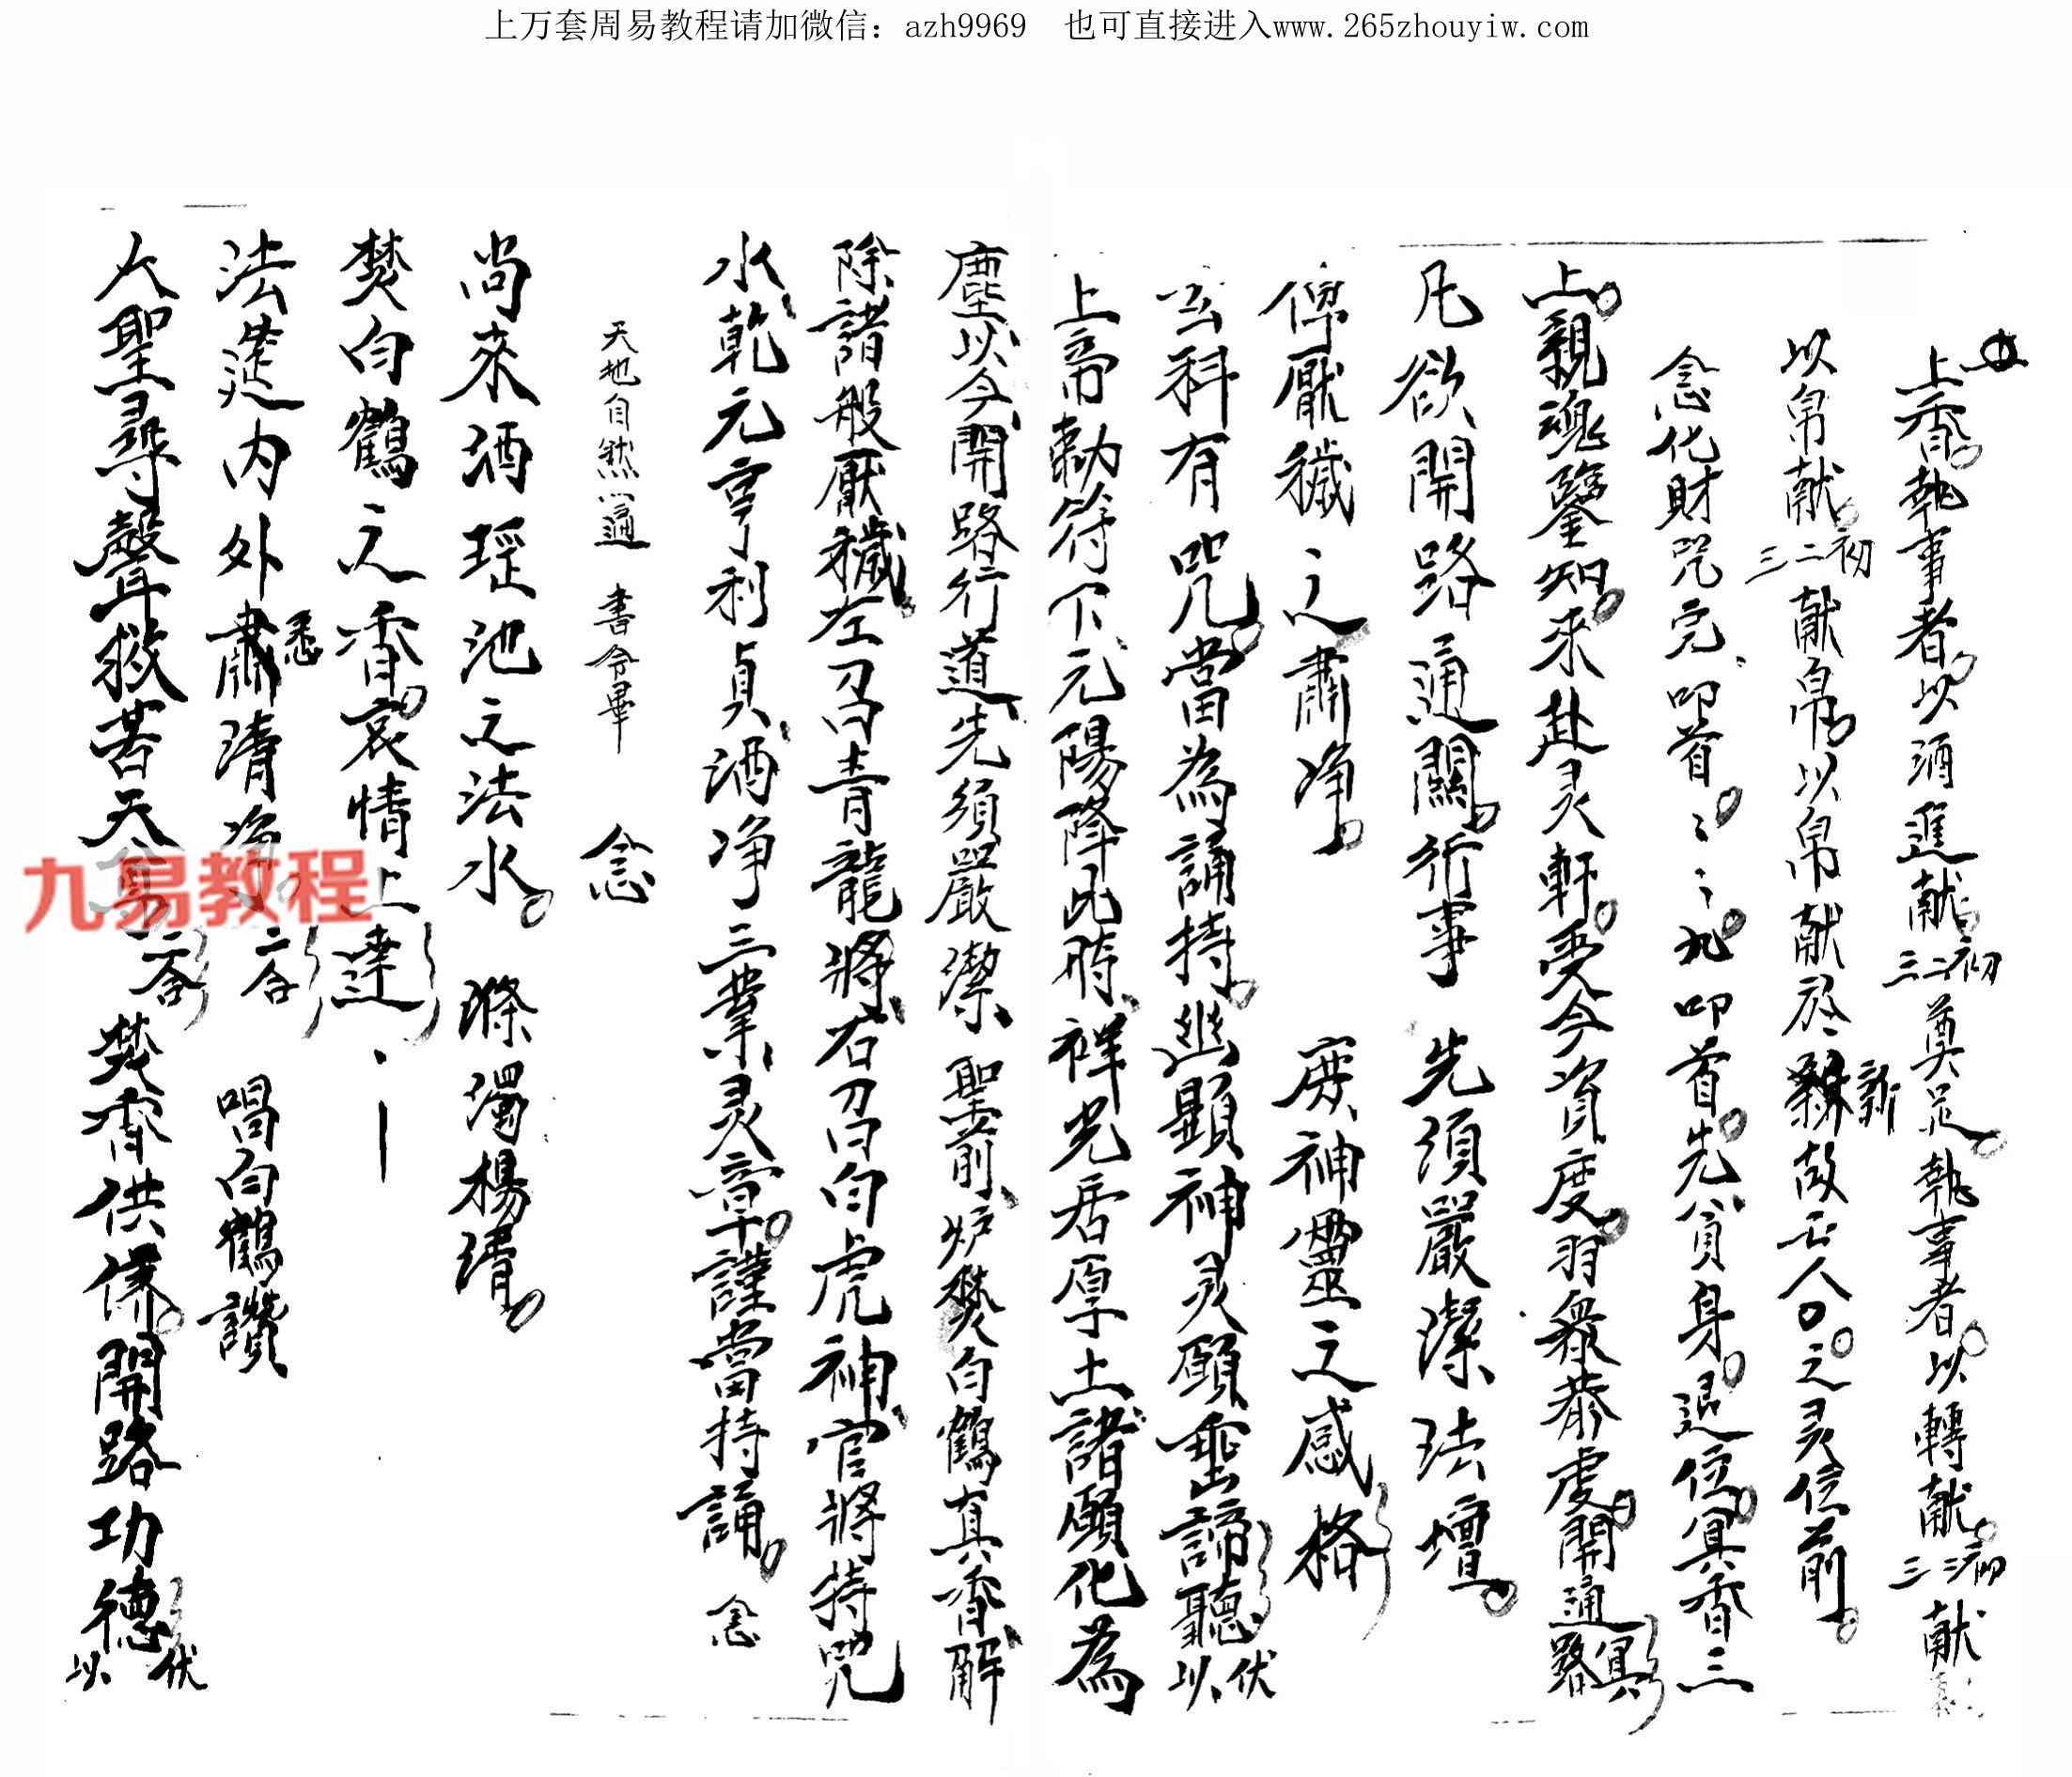 上万套周易教程请加微信：azh9969 也可直接进入www.265zhouyiw.com
上香執事者以酒進献初二三奠足執事者以轉献初二三献
以帛献初二三献帛以帛献於新故亡人之灵位前
念化財咒完叩首〻〻九叩首先貧身退位具香三
上親魂鑒知來赴灵軒受今資度羽衆恭虔開通路具
凡欲開路通關行事 先須嚴潔法壇
俾厭穢之肅净 庶神靈之感格
玄科有咒當為誦持幽顕神灵願垂諦聽伏以
上帝勅符下元陽降此時祥光居厚土諸願化為
塵以今開路行道先須嚴潔聖前炉焚白鶴真香解
除諸般厭穢左召青龍將右召白虎神官將持咒
水乾元亨利貞洒净三業灵章謹當持誦 念
天地自然一遍 書令畢 念
尚來洒瑶池之法水 滌濁楊清
焚白鶴之香哀情上達
法筵内外悉肅清净二合 唱白鶴讚
大聖尋聲救苦天尊二合 焚香供養開路功德伏以
九易教程